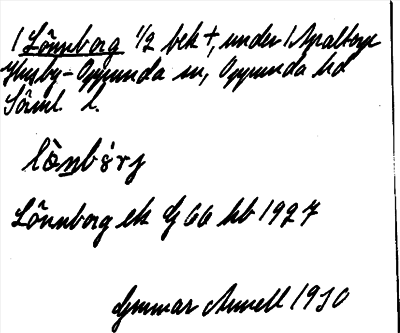 1 Lönnborg 1/2 bek †, under 1 Apaltorp
Husby-Oppunda sn, Oppunda hd
Söml. l.
Lönnborg ek dj 66 hb 1927
Gunnar Arnell 1930